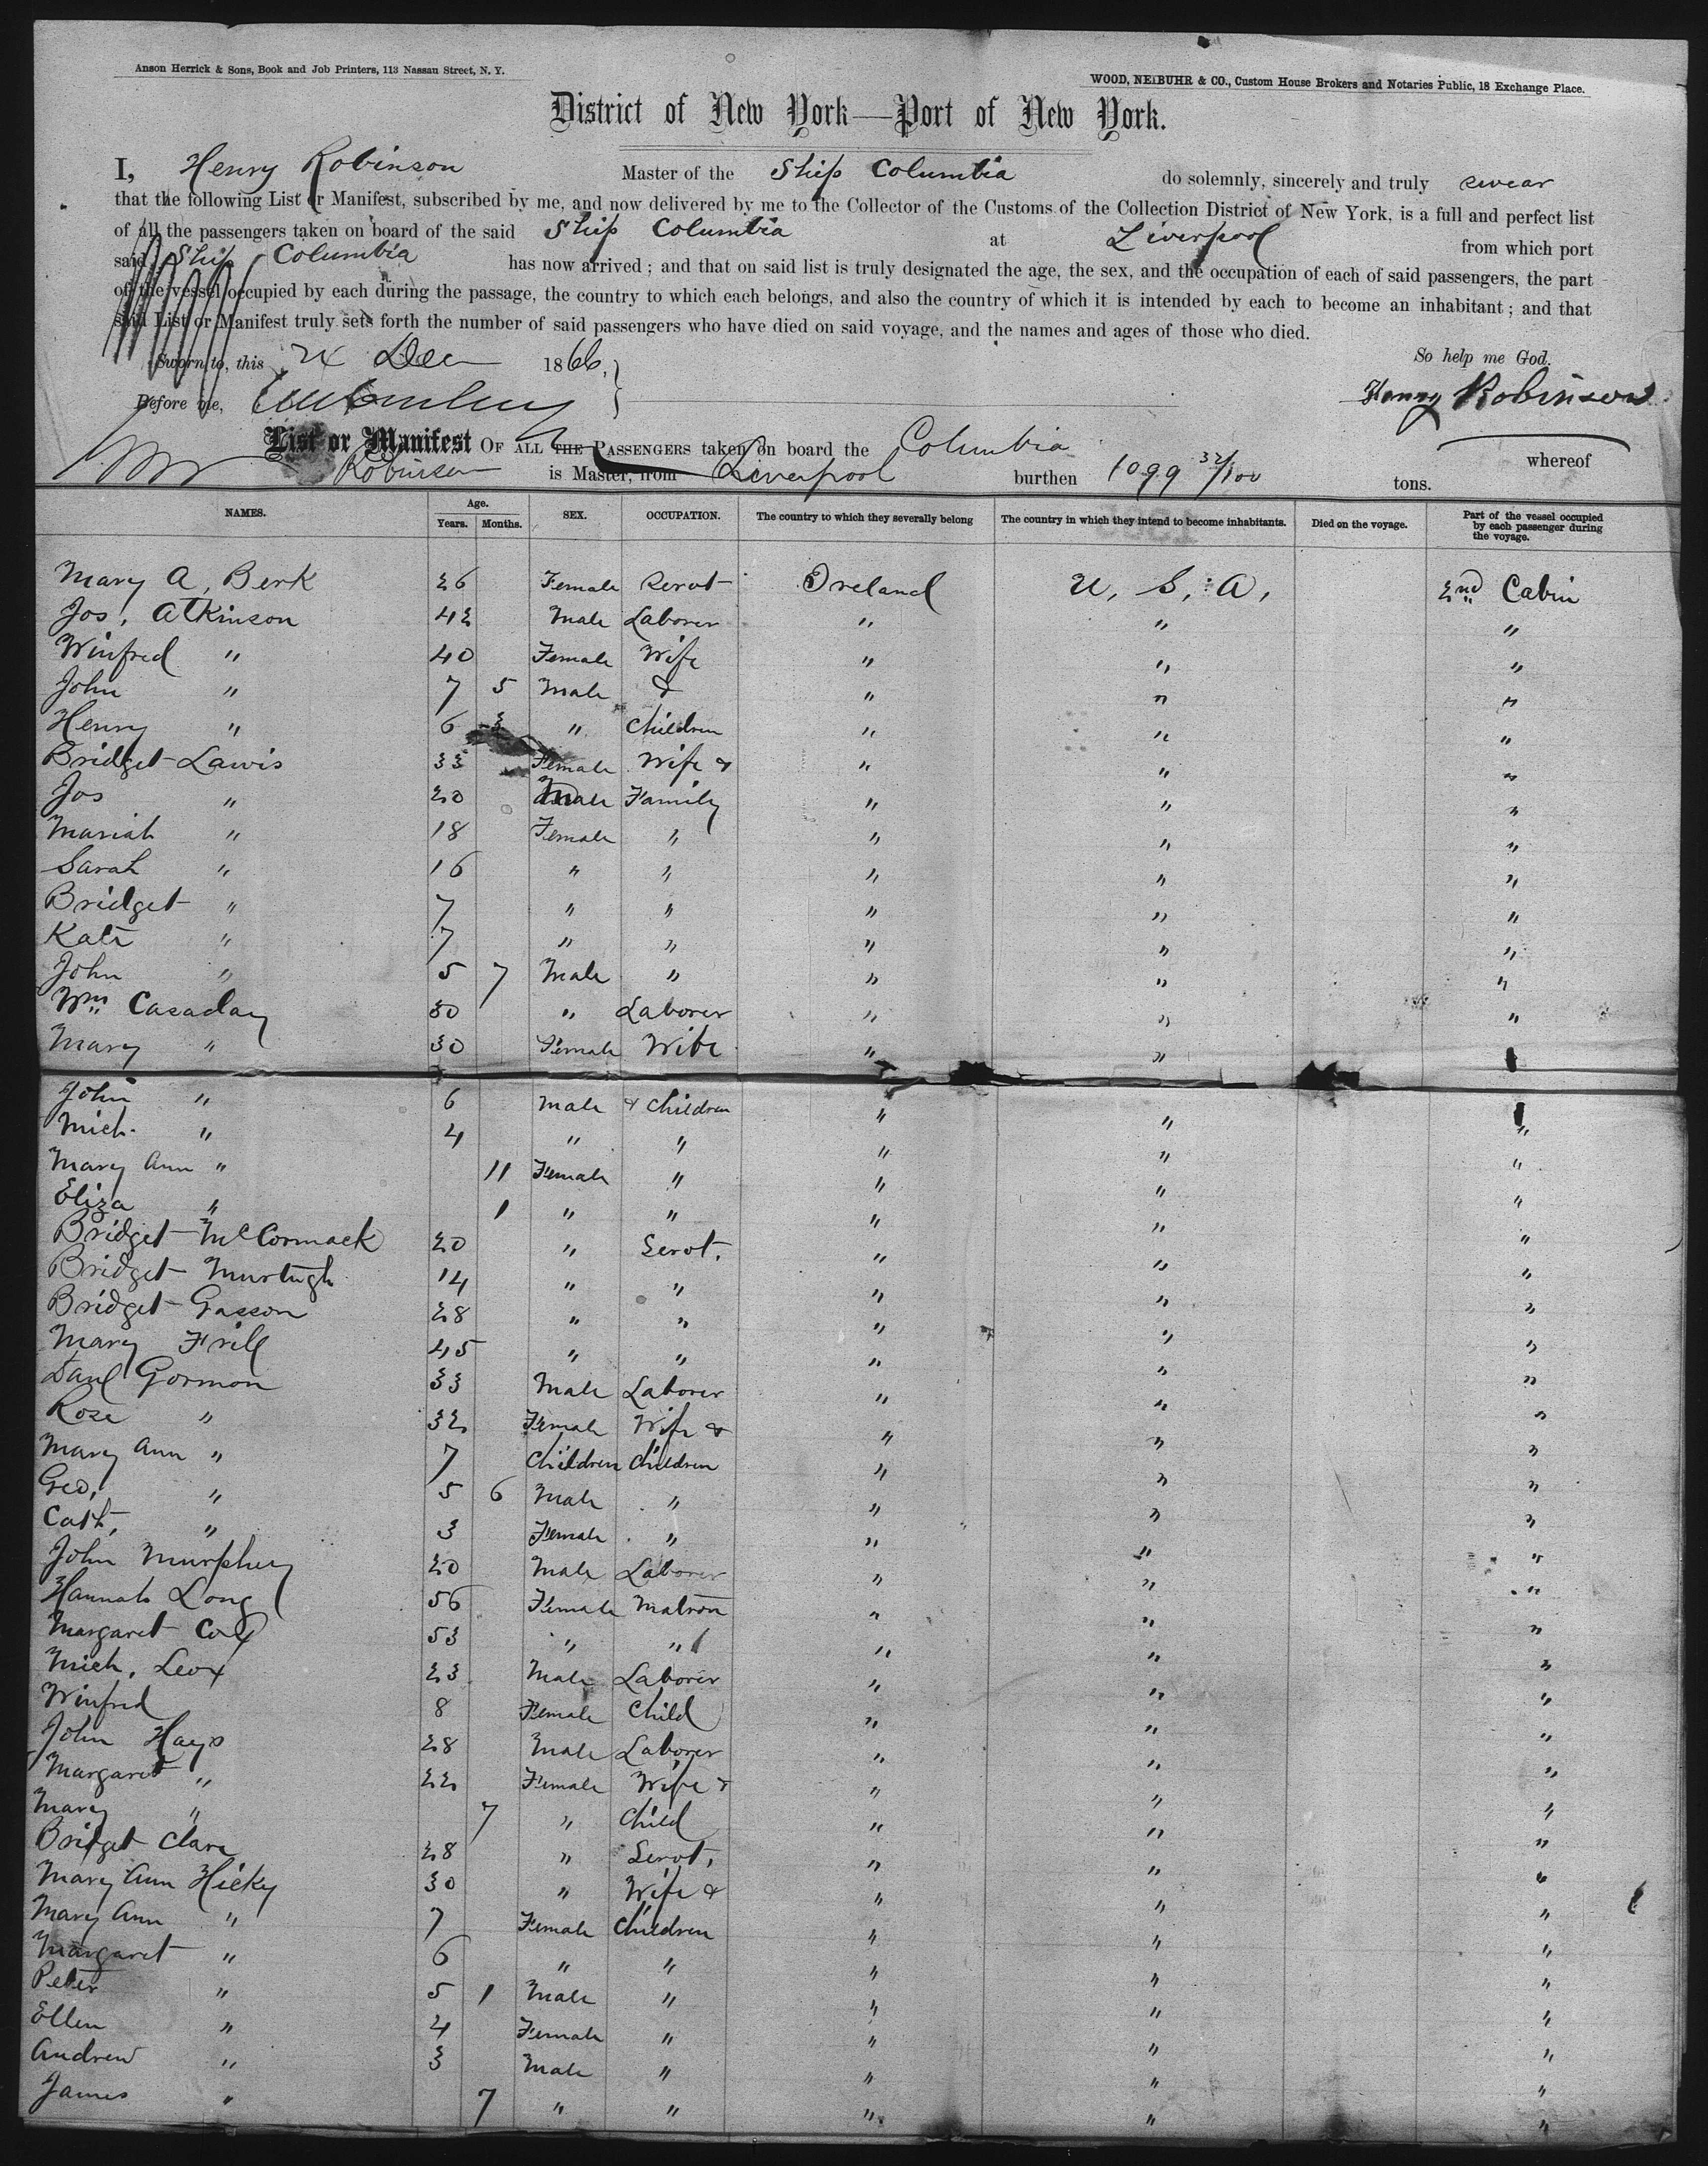 Anson Herrick & Sons, Book and Job Printers, 113 Nassau Street, N. Y.
WOOD, NEIBUHR & CO., Custom House Brokers and Notaries Public, 18 Exchange Place.
District of New York—Port of New York.
I, Henry Robinson Master of the Ship Columbia do solemnly, sincerely and truly swear
that the following List or Manifest, subscribed by me, and now delivered by me to the Collector of the Customs of the Collection District of New York, is a full and perfect list
of all the passengers taken on board of the said Ship Columbia at Liverpool from which port
said Ship Columbia has now arrived; and that on said list is truly designated the age, the sex, and the occupation of each of said passengers, the part
of the vessel occupied by each during the passage, the country to which each belongs, and also the country of which it is intended by each to become an inhabitant; and that
said List or Manifest truly sets forth the number of said passengers who have died on said voyage, and the names and ages of those who died.
Sworn to, this 24 Dec 1866, So help me God.
Before me, Henry Robinson
List or Manifest OF ALL THE PASSENGERS taken on board the Columbia whereof
Robinson is Master, from Liverpool burthen 1099 32/100 tons.
NAMES. Age. Years. Months. SEX. OCCUPATION. The country to which they severally belong The country in which they intend to become inhabitants. Died on the voyage. Part of the vessel occupied by each passenger during the voyage.
Mary A, Berk 26 Female Servt Ireland U, S, A, 2nd Cabin
Jos, Atkinson 42 Male Laborer " " "
Winfred " 40 Female Wife " " "
John " 7 5 Male & " " "
Henry " 6 " Children " " "
Bridget Lawis 33 Female Wife & " " "
Jos " 20 Male Family " " "
Mariah " 18 Female " " " "
Sarah " 16 " " " " "
Bridget " 7 " " " " "
Kate " 7 " " " " "
John " 5 7 Male " " " "
Wm Casaday 30 " Laborer " " "
Mary " 30 Female Wife " "
John " 6 Male & Children " " "
Mich. " 4 " " " " "
Mary Ann " 11 Female " " " "
Eliza " 1 " " " " "
Bridget McCormack 20 " Servt. " " "
Bridget Murtugh 14 " " " " "
Bridget Gasson 28 " " " " "
Mary Frill 45 " " " " "
Danl Gormon 33 Male Laborer " " "
Rose " 32 Female Wife & " " "
Mary Ann " 7 Children Children " " "
Geo, " 5 6 Male " " " "
Cath, " 3 Female " " " "
John Murphey 20 Male Laborer " " "
Hannah Long 56 Female Matron " " "
Margaret Cox 53 " " " " "
Mich, Leox 23 Male Laborer " " "
Winfred 8 Female Child " " "
John Hays 28 Male Laborer " " "
Margaret " 22 Female Wife & " " "
Mary " 7 " Child " " "
Bridget Clare 28 " Servt, " " "
Mary Ann Hicky 30 " Wife & " " "
Mary Ann " 7 Female Children " " "
Margaret " 6 " " " " "
Peter " 5 1 Male " " " "
Ellen " 4 Female " " " "
Andrew " 3 Male " " " "
James " 7 " " " " "